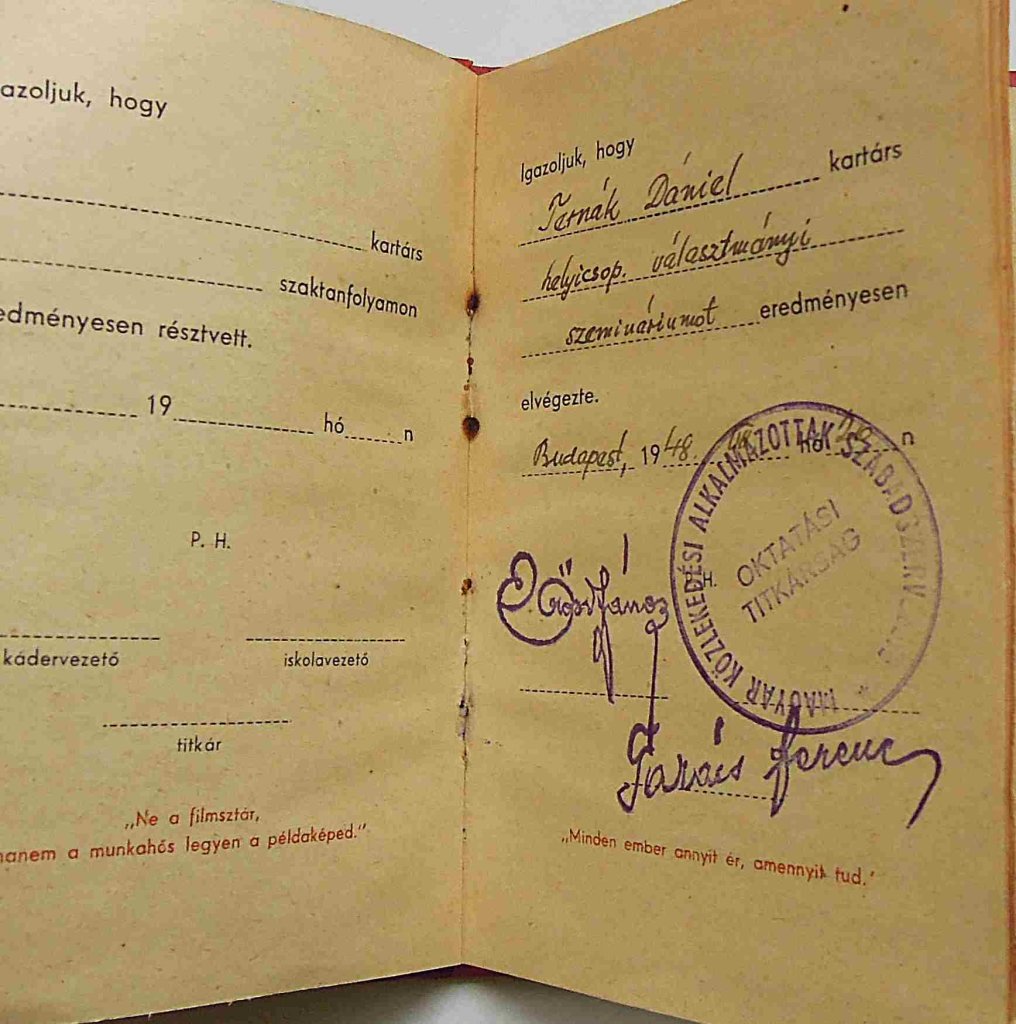 azoljuk, hogy
kartárs
szaktanfolyamon
edményesen résztvett.
19 hó n
P. H.
kádervezető iskolavezető
titkár
„Ne a filmsztár,
hanem a munkahős legyen a példaképed."
Igazoljuk, hogy
Ternák Dániel kartárs
helyicsop. választmányi
szemináriumot eredményesen
elvégezte.
Budapest, 1948. hó n
H.
MAGYAR KÖZLEKEDÉSI ALKALMAZOTTAK
OKTATÁSI
TITKÁRSÁG
János
Ferenc
„Minden ember annyit ér, amennyit tud."